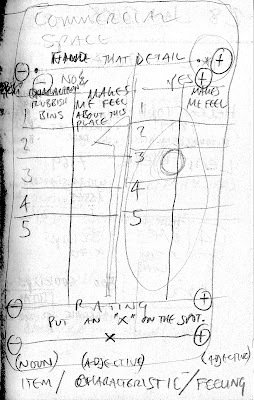 COMMERCIAL
SPACE
FIND THAT DETAIL
NO YES
RUBBISH BINS MAKES ME FEEL ABOUT THIS PLACE MAKES ME FEEL
1 1
2 2
3 3
4 4
5 5
RATING
PUT AN "X" ON THE SPOT.
X
(NOUN) (ADJECTIVE) (ADJECTIVE)
ITEM / CHARACTERISTIC / FEELING